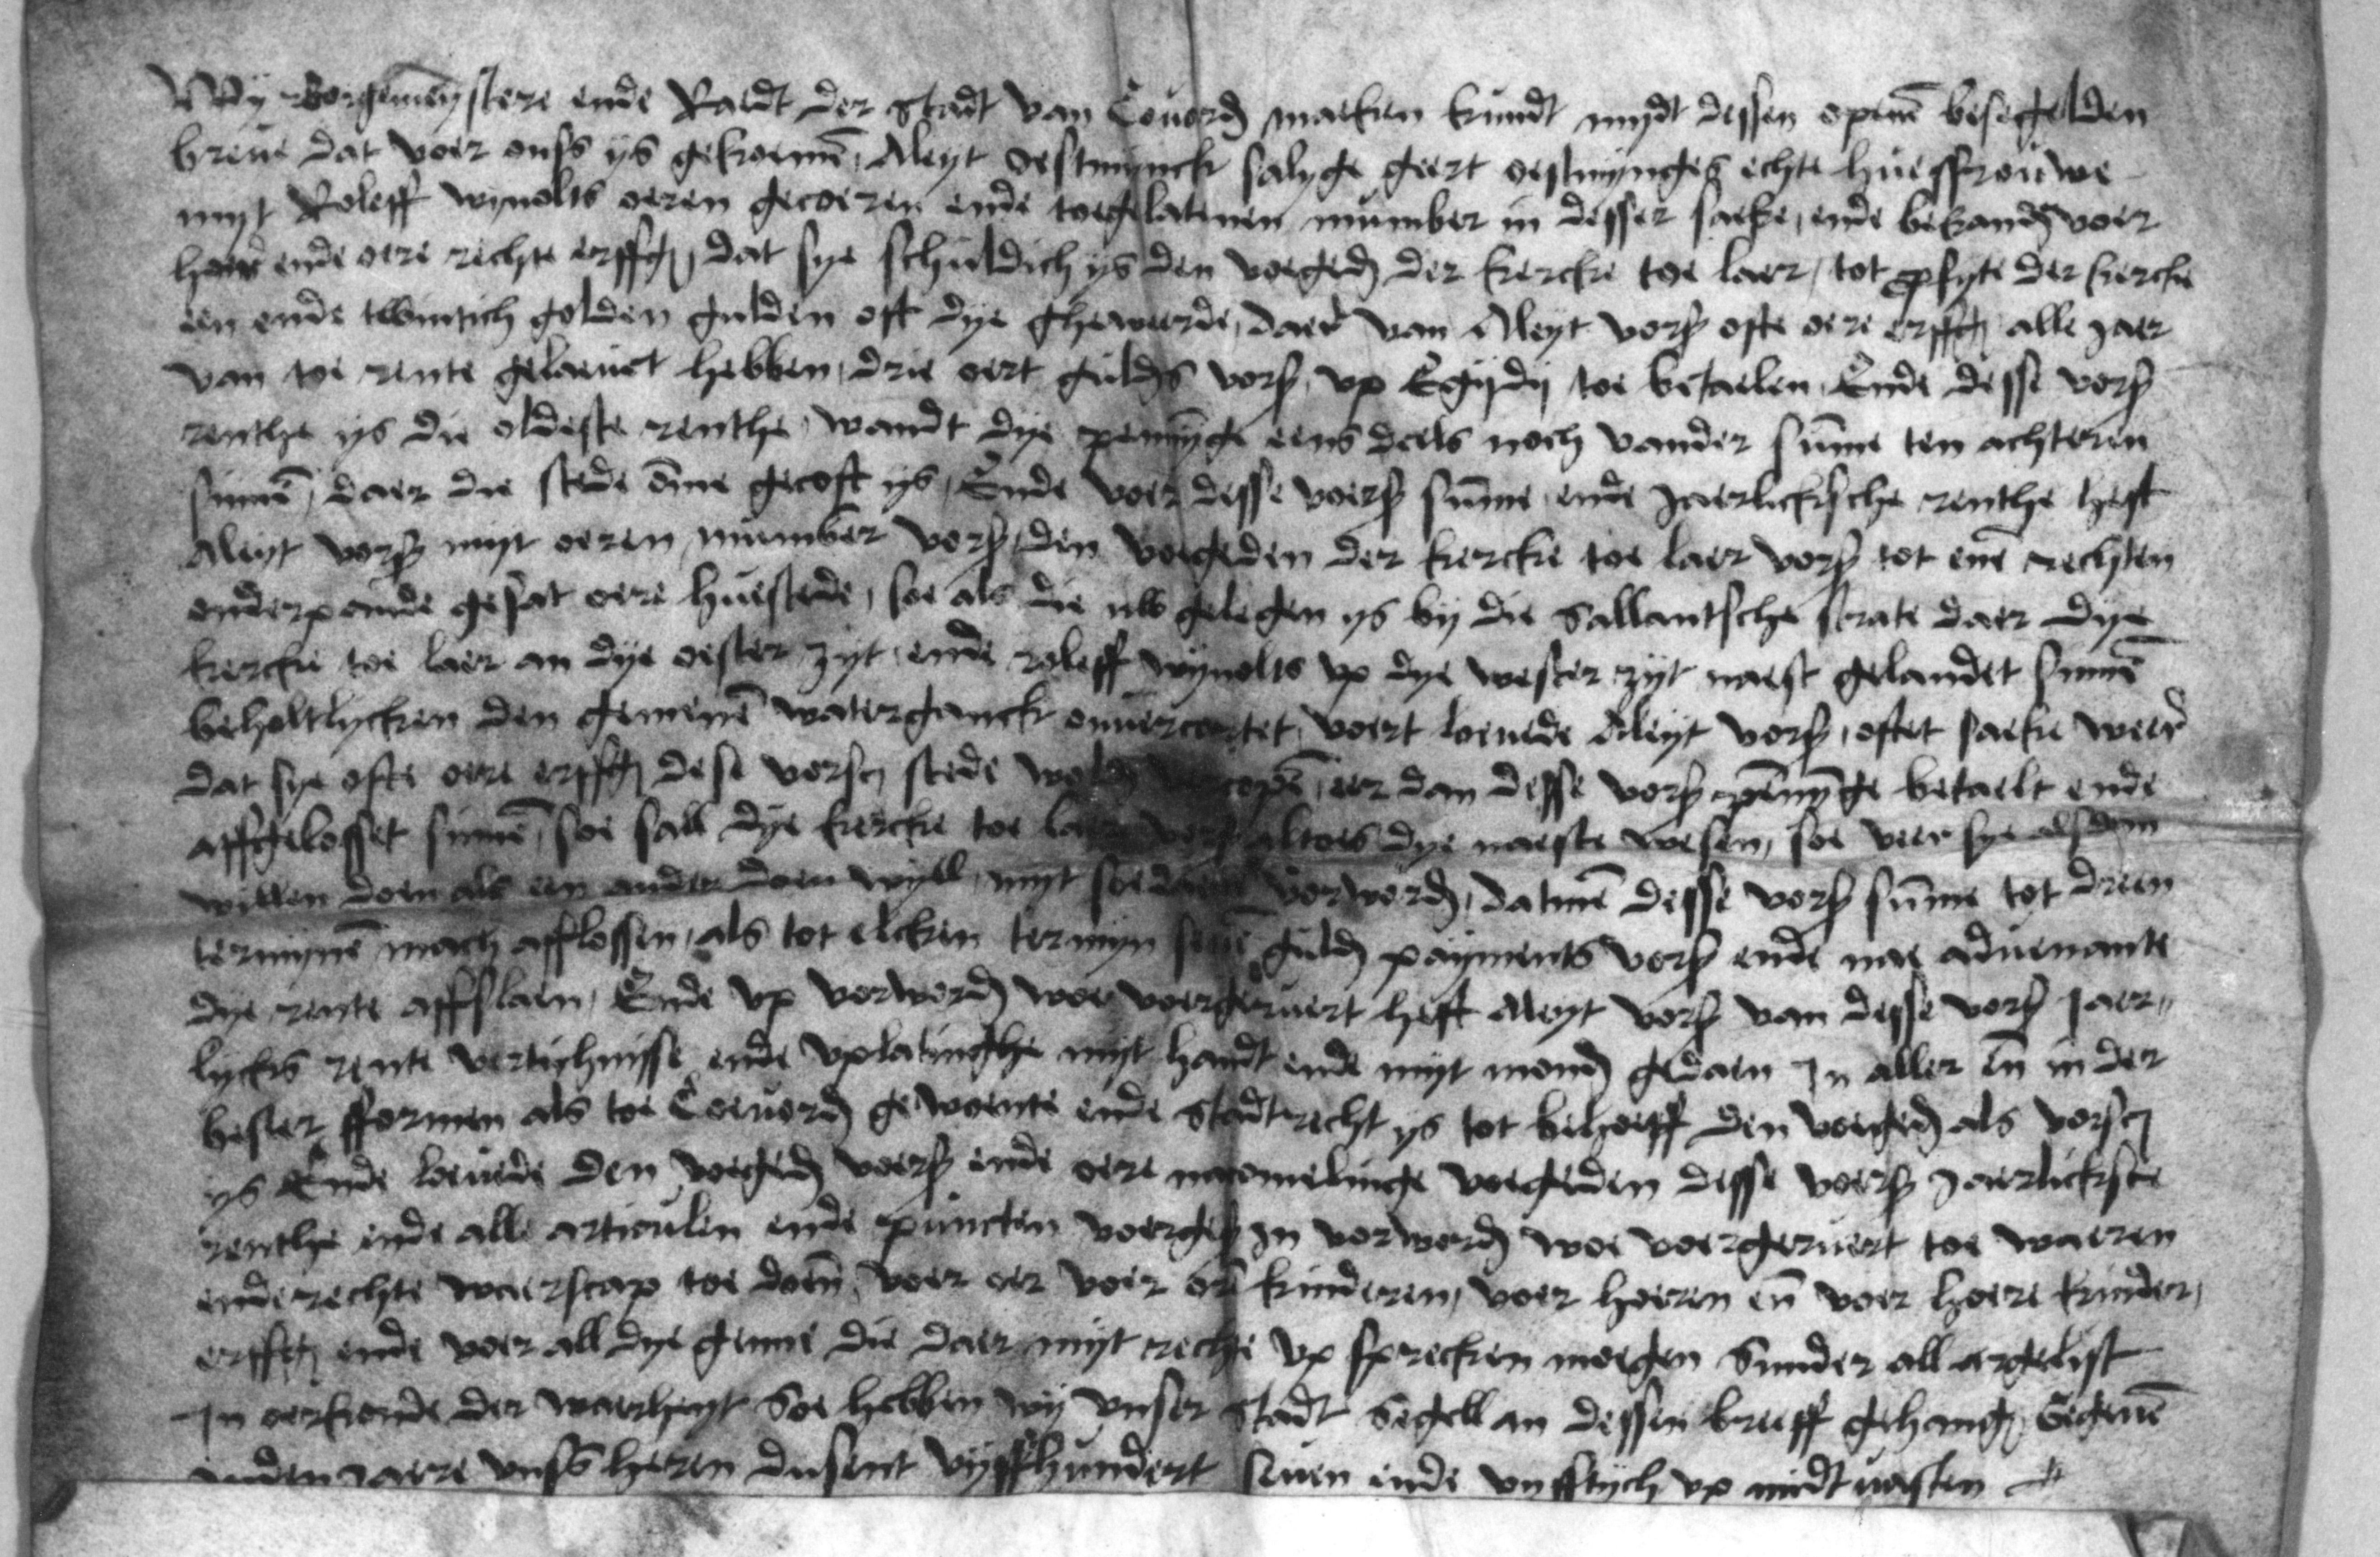 Wy Borgemeystere ende Raedt der stadt van Couord maeken kundt mydt dessen openē besegelden
breue dat voer onss ys gekoemē, Aleyt oestmynck salyge geert oestmynges echte huesffrouwe
myt Roleff wynolts oeren gecoeren ende toegelatenen mumber in desser saeke, ende bekande voer
haer ende oere rechte erffg, dat sye schuldich ys den voeged der kercke toe laer, tot pfyte der kercke
een ende twintich golden gulden oft dye ghewerde, daer van Aleyt vors ofte oere erffg alle jaer
van toe rente gelaeuet hebben, drie oert guldes vors, vp Egydij toe betaelen, Ende desse vors
renthe ys die oldeste renthe, wandt dye penynge eens deels noch vander sūme ten achteren
sinnē, daer die stede ōme gecoft ys, Ende voer desse voers sūme ende jaerlicksche renthe heft
Aleyt vors myt oeren mumber vors, den voegeden der kercke toe laer vors tot enē rechten
onderpande gesat oere huestede, soe als die nw gelegen ys by die Sallantsche strate daer dye
kercke toe laer an dye oester zyt, ende roleff wynolts vp dye wester zyt naest gelandet sinnē
beholtlycken den gemenē waterganck onuercortet, voert loeuede Aleyt vors, oftet saeke weer
dat sye ofte oere erffg dese vorsc stede wold vercopē, eer dan desse vors pēnynge betaelt ende
affgelosset sinnē, soe sall dye kercke toe laer vors altoes dye naeste wesen, soe veer sye alsdan
willen doen als een ander doen wyll, myt vorword, datmē desse vors sūme tot dreen
termynē mach afflossen, als tot elcken termyn seuē guld payments vors ende nae aduenante
dye rente affslaen, Ende vp vorword woe voergeruert heft Aleyt vors van desse vors jaer„
lycks rente vertichnysse ende vplatinghe myt handt ende myt mond gedaen In aller en̄ in der
bester fformen als toe Coeuord gewoente ende stadtrecht ys tot behoeff den voeged als vorsc
ys Ende loeuede den voeged voers ende oere nacomelinge voegeden desse voers jaerlickste
renthe ende alle articulen ende puncten voerges in vorword woe voergeruert toe waeren
ende rechte waerscap toe doen̄, voer oer voer oer kinderen, voer heeren en̄ voer heere kinder,
erffg ende voer all dye genne die daer myt rechte vp sprecken moegen Sunder all argelyst
In oerkonde der waerheyt Soe hebben wy vnser stadt Segell an dessen breeff gehang, Gegeuē
inden jaere vnss heren dusent vyffhundert seuen ende vyfftych vp midtuasten